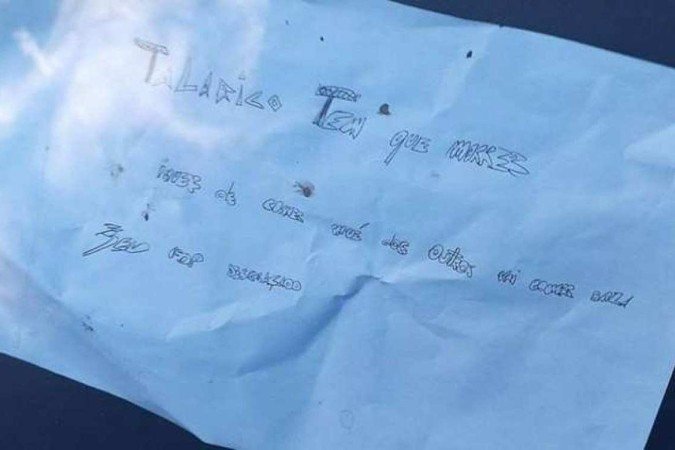 TALARICO TEM QUE MORRER
iNVEZ de COMER MUÉ dos OUTROS VAI COMER BALA
SEU FDP DESGRAÇADO